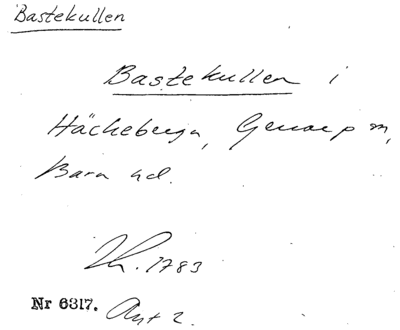 Bastekullen
Bastekullen i
Häckeberga, Genarp sn,
Bara hd.
Kt. 1783
Nr 6317. Akt 2.